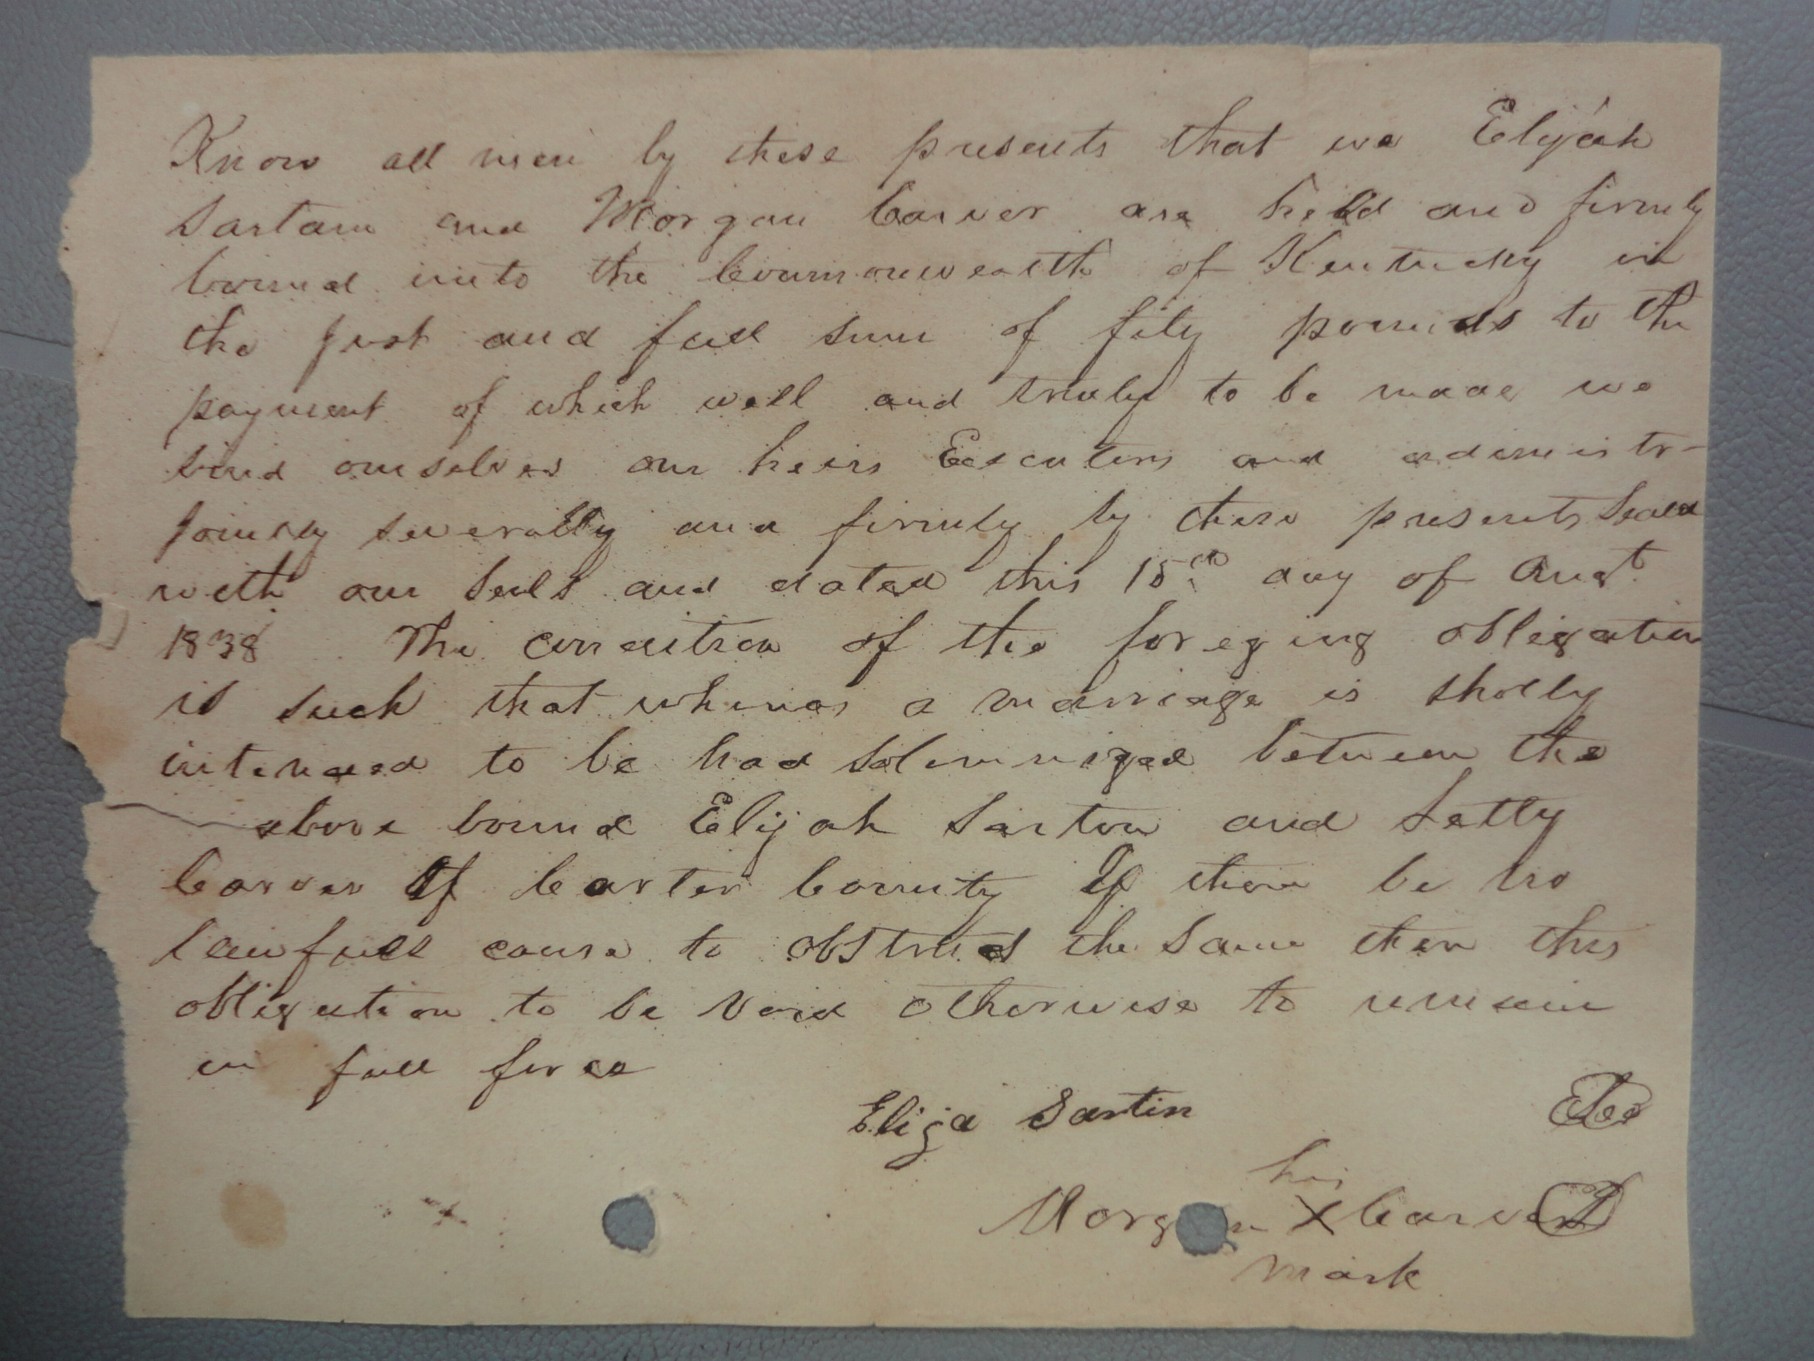 Know all men by these presents that we Elijah
Sartain and Morgan Carver are held and firmly
bound unto the Commonwealth of Kentucky in
the just and full sum of fity pounds to the
payment of which well and truly to be made we
bind ourselves our heirs Executors and administr-
Jointly severally and firmly by these presents Seald
with our Seals and dated this 15th day of Augt
1838 The condition of the foreging obligation
is such that whereas a marriage is shotly
intended to be had Solemnized between the
above bound Elijah Sarton and Letty
Carver of Carter County If there be no
lawfull cause to obstruct the same then this
obligation to be void otherwise to remain
in full force
Elija Sartin
his
Morgan X Carver
mark